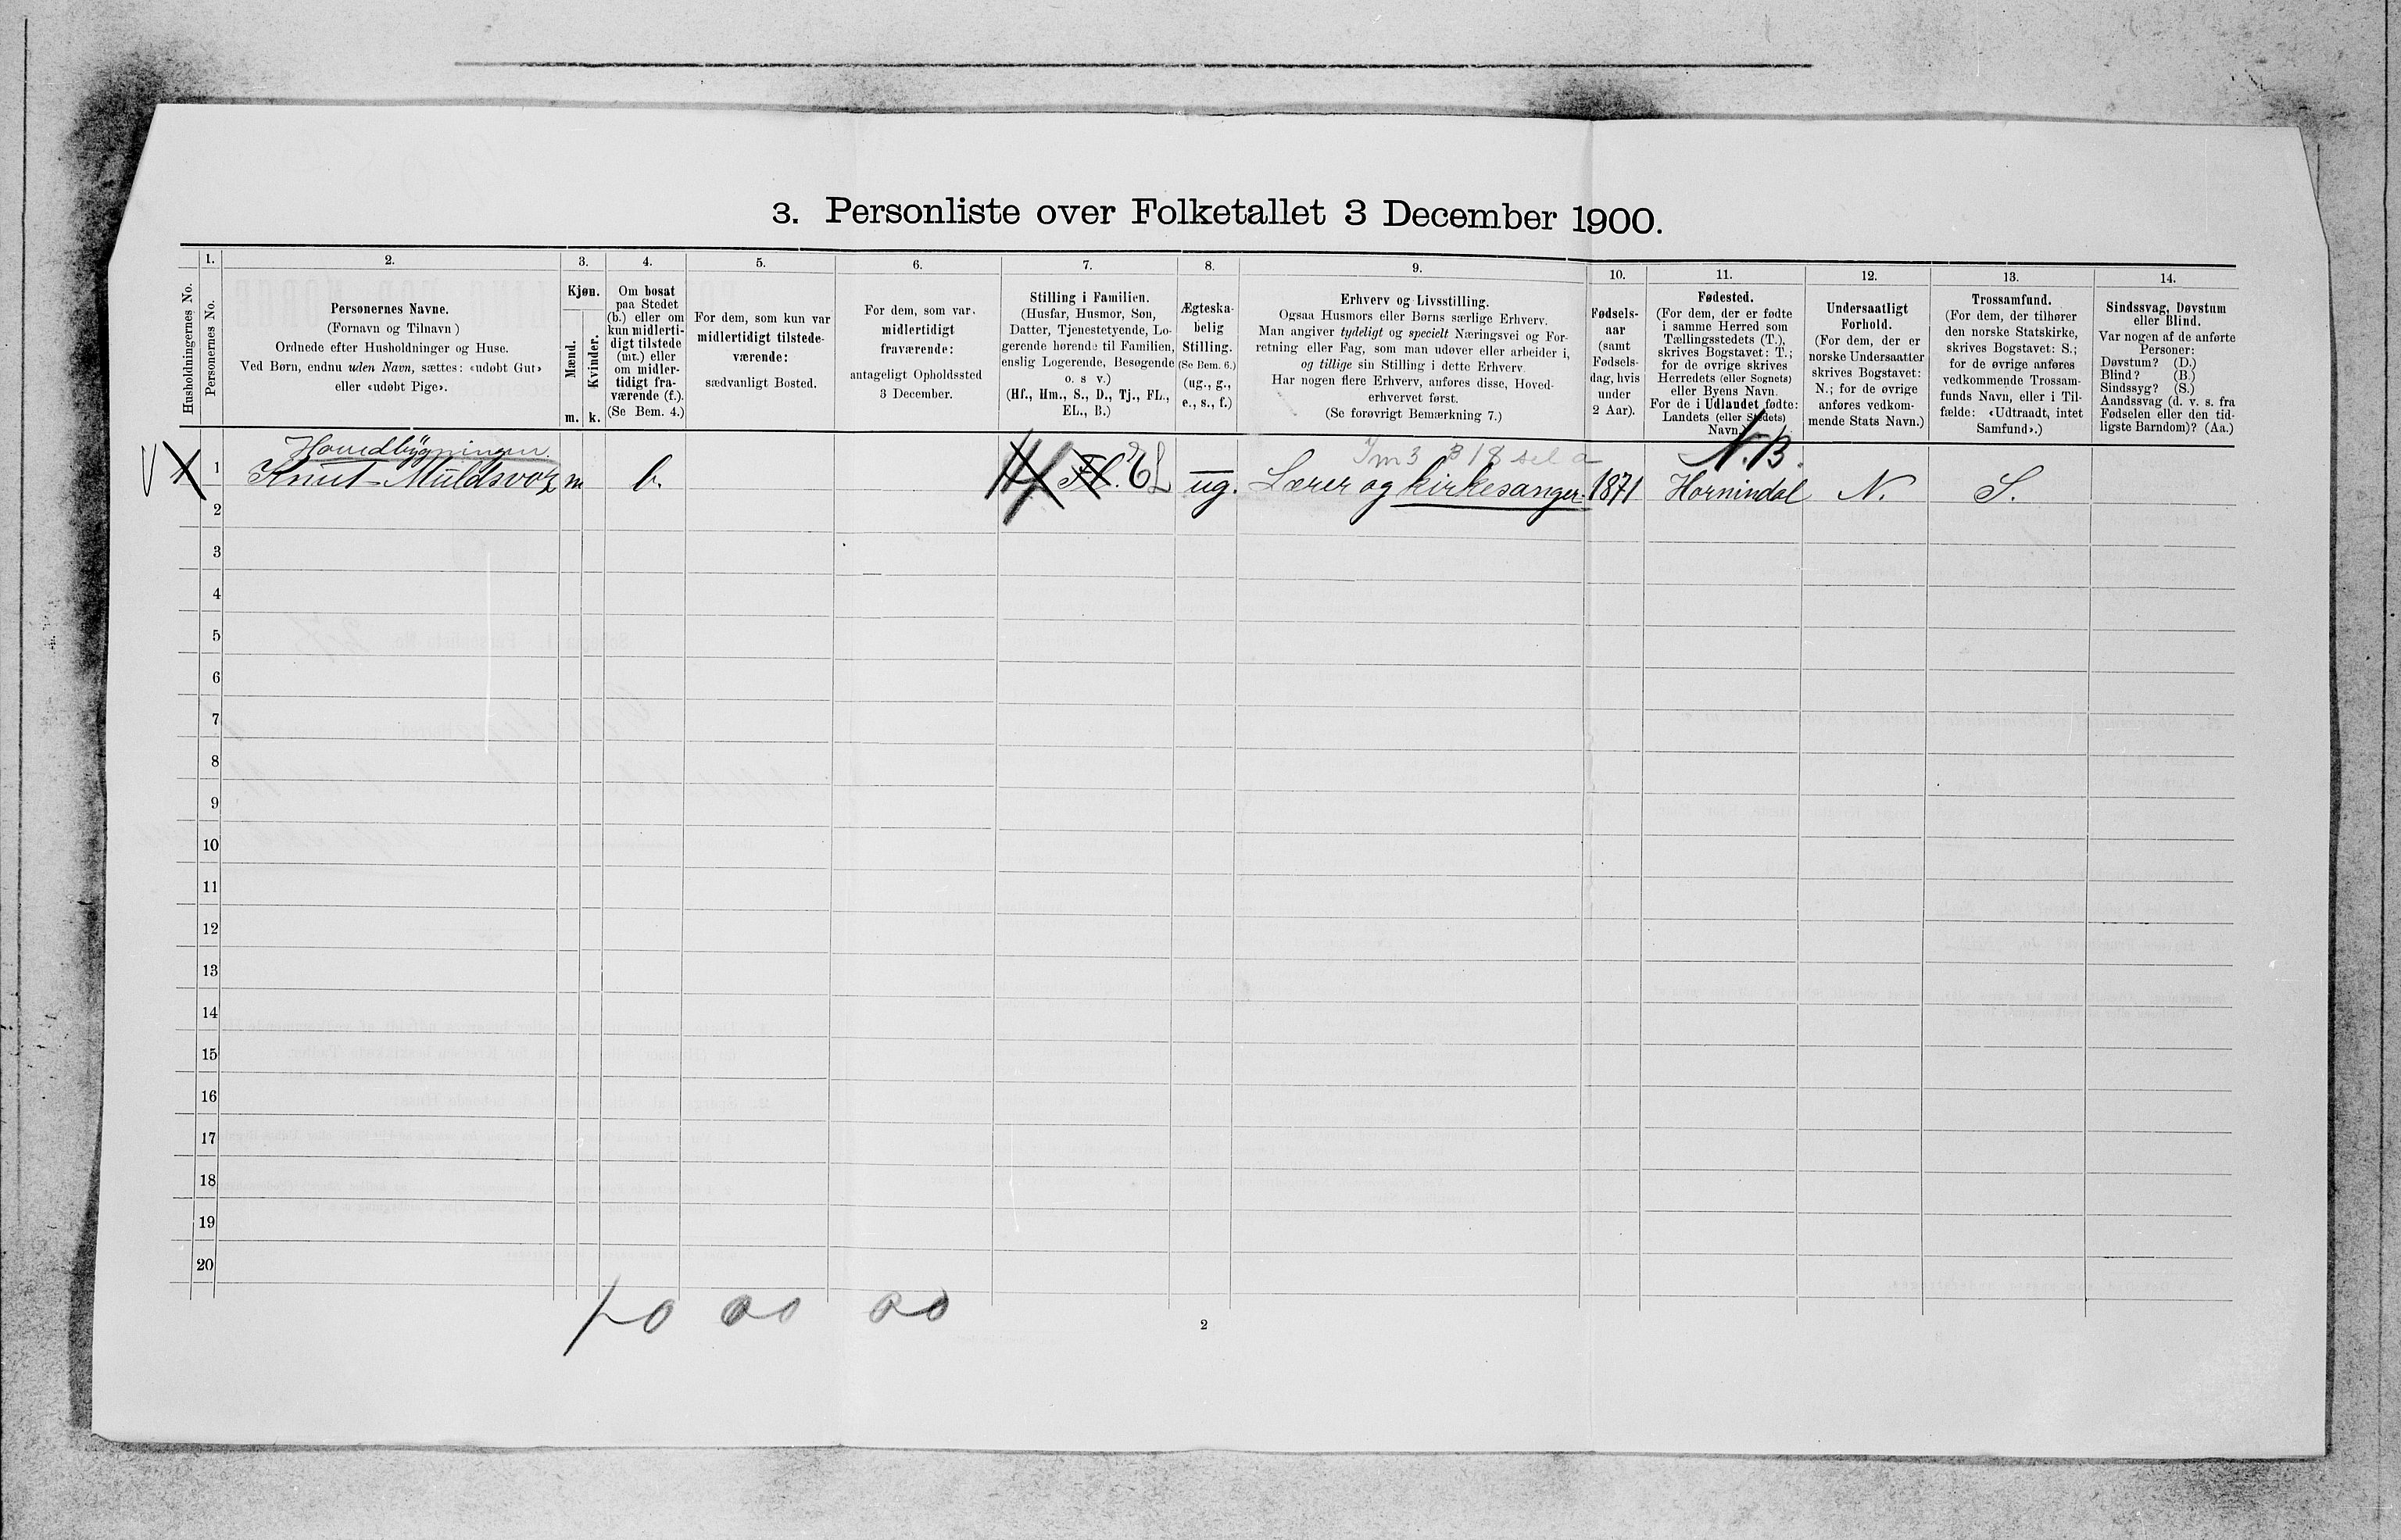 3. Personliste over Folketallet 3 December 1900.
1. 2. 3. 4. 5. 6. 7. 8. 9. 10. 11. 12. 13. 14.
Husholdningernes No.
Personernes No.
Personernes Navne.
(Fornavn og Tilnavn )
Ordnede efter Husholdninger og Huse.
Ved Børn, endnu uden Navn, sættes: «udøbt Gut»
eller «udøbt Pige».
Kjøn.
Mænd.
Kvinder.
m. k.
Om bosat
paa Stedet
(b.) eller om
kun midlerti-
digt tilstede
(mt.) eller
om midler-
tidigt fra-
værende (f.).
(Se Bem. 4.)
For dem, som kun var
midlertidigt tilstede-
værende:
sædvanligt Bosted.
For dem, som var
midlertidigt
fraværende:
antageligt Opholdssted
3 December.
Stilling i Familien.
(Husfar, Husmor, Søn,
Datter, Tjenestetyende, Lo-
gerende hørende til Familien,
enslig Logerende, Besøgende
o. s v.)
(Hf., Hm., S., D., Tj., FL.,
EL., B.)
Ægteska-
belig
Stilling.
(Se Bem. 6.)
(ug., g.,
e., s., f.)
Erhverv og Livsstilling.
Ogsaa Husmors eller Børns særlige Erhverv.
Man angiver tydeligt og specielt Næringsvei og For-
retning eller Fag, som man udøver eller arbeider i,
og tillige sin Stilling i dette Erhverv.
Har nogen flere Erhverv, anføres disse, Hoved-
erhvervet først.
(Se forøvrigt Bemærkning 7.)
Fødsels-
aar
(samt
Fødsels-
dag, hvis
under
2 Aar).
Fødested.
(For dem, der er fødte
i samme Herred som
Tællingsstedets (T.),
skrives Bogstavet: T.;
for de øvrige skrives
Herredets (eller Sognets)
eller Byens Navn.
For de i Udlandet fødte:
Landets (eller Stedets)
Navn.
Undersaatligt
Forhold.
(For dem, der er
norske Undersaatter
skrives Bogstavet:
N.; for de øvrige
anføres vedkom-
mende Stats Navn.)
Trossamfund.
(For dem, der tilhører
den norske Statskirke,
skrives Bogstavet: S.;
for de øvrige anføres
vedkommende Trossam-
funds Navn, eller i Til-
fælde: «Udtraadt, intet
Samfund».)
Sindssvag, Døvstum
eller Blind.
Var nogen af de anførte
Personer:
Døvstum? (D.)
Blind? (B.)
Sindssyg? (S.)
Aandssvag (d. v. s. fra
Fødselen eller den tid-
ligste Barndom)? (Aa.)
Hovedbygningen. N.B.
1 Knut Muldsvor m b. Fl. EL ug. Lærer og kirkesanger 1871 Hornindal N. S.
2
3
4
5
6
7
8
9
10
11
12
13
14
15
16
17
18
19
20
1 0 00 00
2